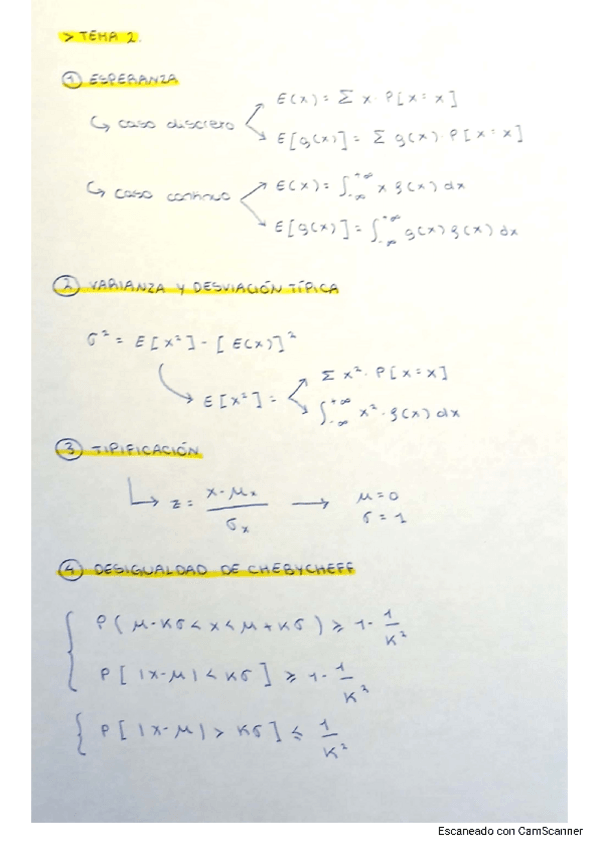 > TEMA 2.
① ESPERANZA
↳ caso discreto
E(x) = Σ x · P[x = x]
E[g(x)] = Σ g(x) · P[x = x]
↳ caso continuo
E(x) = ∫₋∞⁺∞ x f(x) dx
E[g(x)] = ∫₋∞⁺∞ g(x) f(x) dx
② VARIANZA Y DESVIACIÓN TÍPICA
σ² = E[x²] - [E(x)]²
E[x²] =
Σ x² · P[x = x]
∫₋∞⁺∞ x² · f(x) dx
③ TIPIFICACIÓN
z = (x - μₓ) / σₓ → μ = 0
σ = 1
④ DESIGUALDAD DE CHEBYCHEFF
P(μ - kσ < x < μ + kσ) ≥ 1 - 1/k²
P[|x - μ| < kσ] ≥ 1 - 1/k²
P[|x - μ| > kσ] ≤ 1/k²
Escaneado con CamScanner